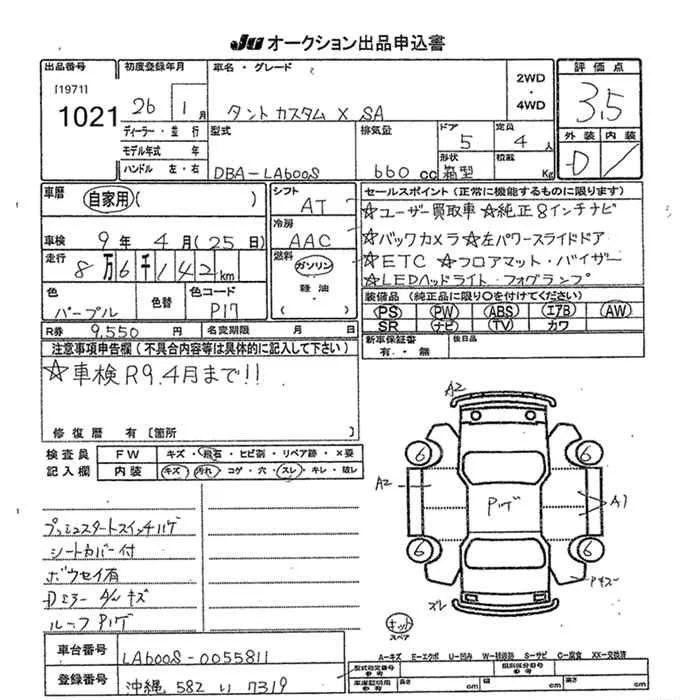 JU オークション出品申込書
出品番号 初度登録年月 車名・グレード 2WD・4WD 評価点
[1971]
1021 26 1月 タントカスタム X SA 3.5
ディーラー・並行 型式 排気量 ドア 5 定員 4人 外装 内装
モデル年式 年
ハンドル 左・右 DBA-LA600S 660cc 形状 箱型 積載 Kg D
車歴 自家用( ) シフト AT セールスポイント(正常に機能するものに限ります)
☆ユーザー買取車 ☆純正8インチナビ
車検 9年4月(25日) 冷房 AAC ☆バックカメラ ☆左パワースライドドア
走行 8万6千142km 燃料 ガソリン・軽油・( ) ☆ETC ☆フロアマット・バイザー
☆LEDヘッドライト・フォグランプ
色 パープル 色替 色コード P17 装備品(純正品に限り○を付けてください)
PS PW ABS エアB AW
R券 9,550円 名変期限 月 日 SR ナビ TV カワ
注意事項申告欄(不具合内容等は具体的に記入して下さい) 新車保証書 有・無 後日品
☆車検R9.4月まで!!
修復歴 有 〔箇所 〕
検査員 FW キズ・飛石・ヒビ割・リペア跡・×要
記入欄 内装 キズ・汚れ・コゲ・穴・スレ・キレ・破レ
A2
6 6
A2 Pハゲ A1
6 6
スレ
キット
スペア
プッシュスタートスイッチハゲ
シートカバー付
ボウセイ有
ルーフPハゲ
車台番号 LA600S-0055811
登録番号 沖縄 582 い 7319
A-キズ E-エクボ U-凹み S-サビ C-腐食 XX-交換済
型式指定番号 参考 類別区分番号 参考
車庫証明用 参考 長さ cm 幅 cm 高さ cm